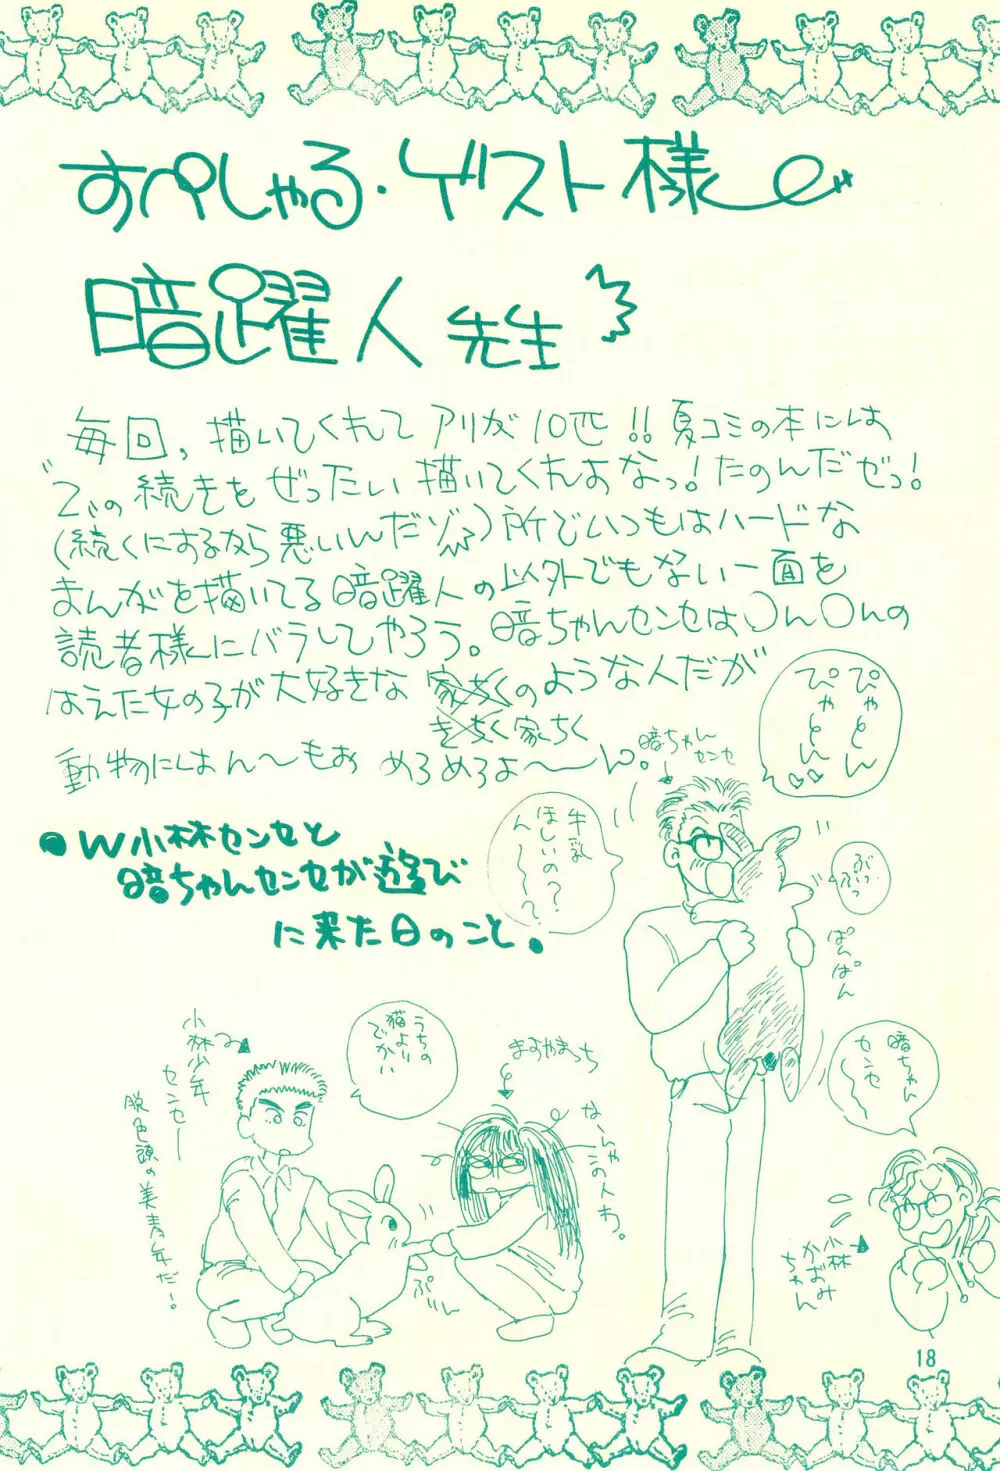 すぺしゃる・ゲスト様
暗躍人先生
毎回,描いてくれてアリが10匹!!夏コミの本には
この続きをぜったい描いてくれよなっ!たのんだぜっ!
(続くにするなら悪いんだゾ)所でいつもはハードな
まんがを描いてる暗躍人の以外でもない一面を
読者様にバラしてやろう。暗ちゃんセンセは○ん○んの
はえた女の子が大好きな家ちくのような人だが
きちく家ちく
動物にはん〜もお めろめろよ〜ん。
暗ちゃんセンセ
ぴゃとん
ぴゃとん♡♡
●W小林センセと
暗ちゃんセンセが遊び
に来た日のこと。
牛乳
ほしいの?
ん〜〜?
ぶいっ
ぶっ
ぱんぱん
暗ちゃん
センセ〜
小林
かおみ
ちゃん
うちの
猫より
でかい
小林少年
センセー
脱色頭の美青年だ!
まるやまっち
な〜んゃこの人わ。
ぷりん
18